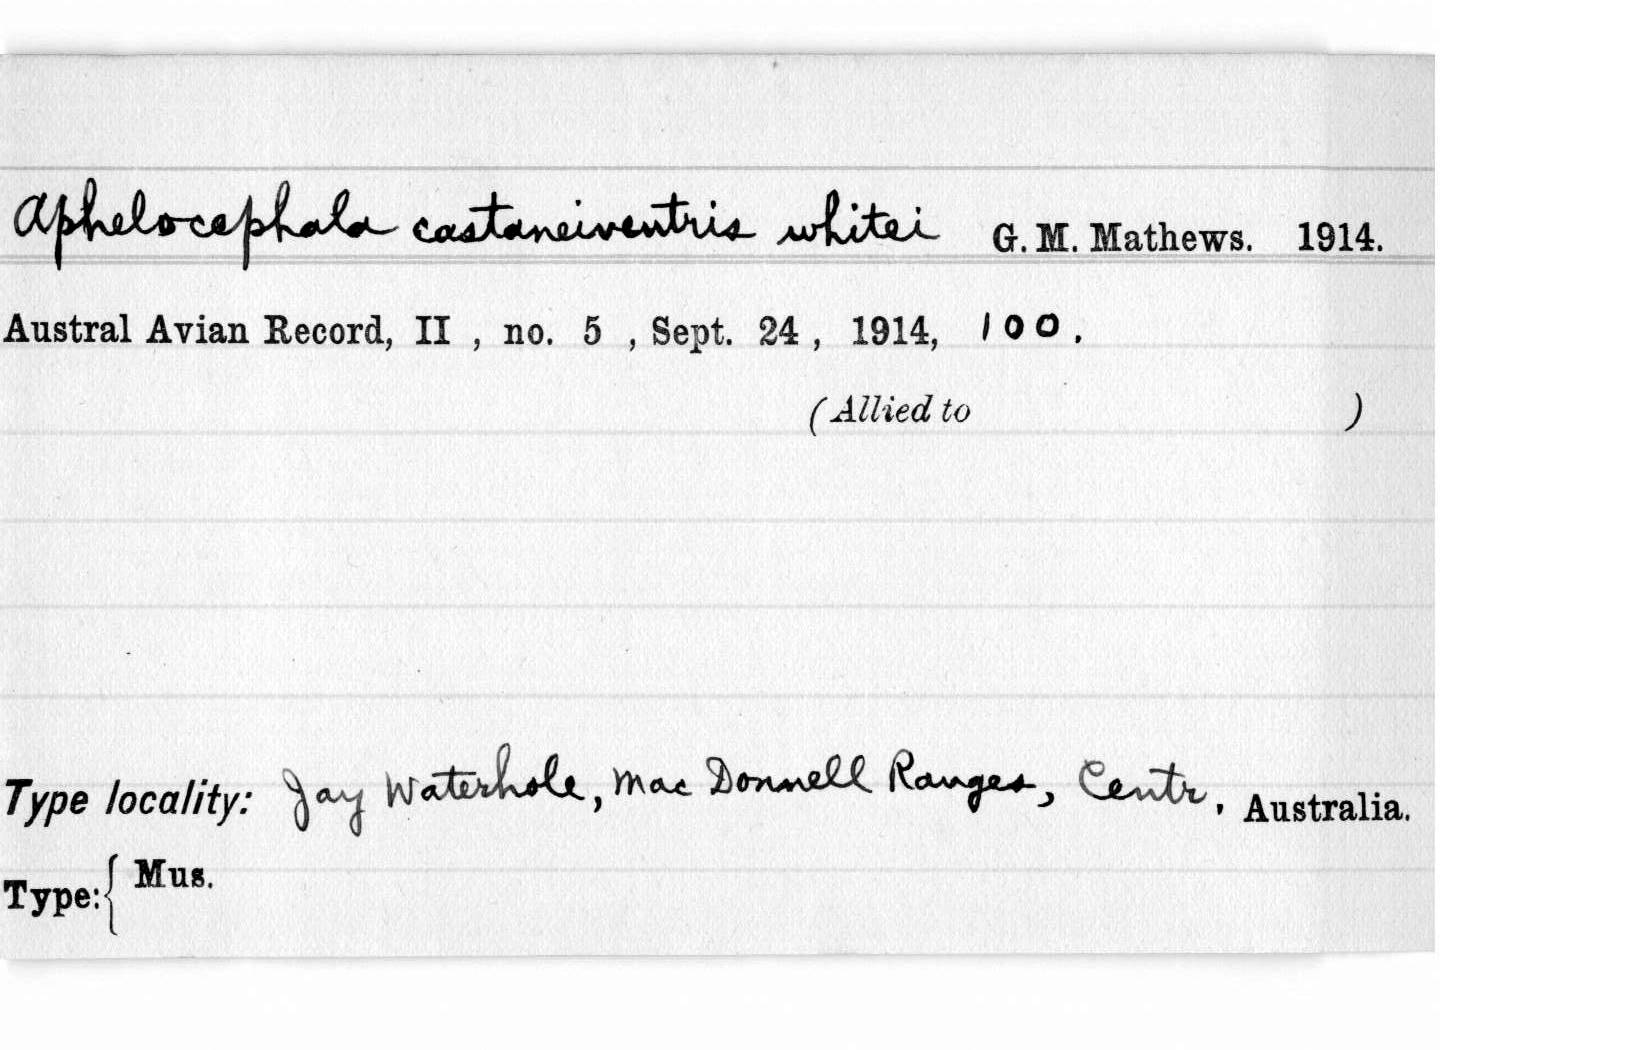 Aphelocephala castaneiventris whitei G. M. Mathews. 1914.
Austral Avian Record, II , no. 5 , Sept. 24 , 1914, 100.
(Allied to )
Type locality: Jay Waterhole, Mac Donnell Ranges, Centr. Australia.
Type: { Mus.